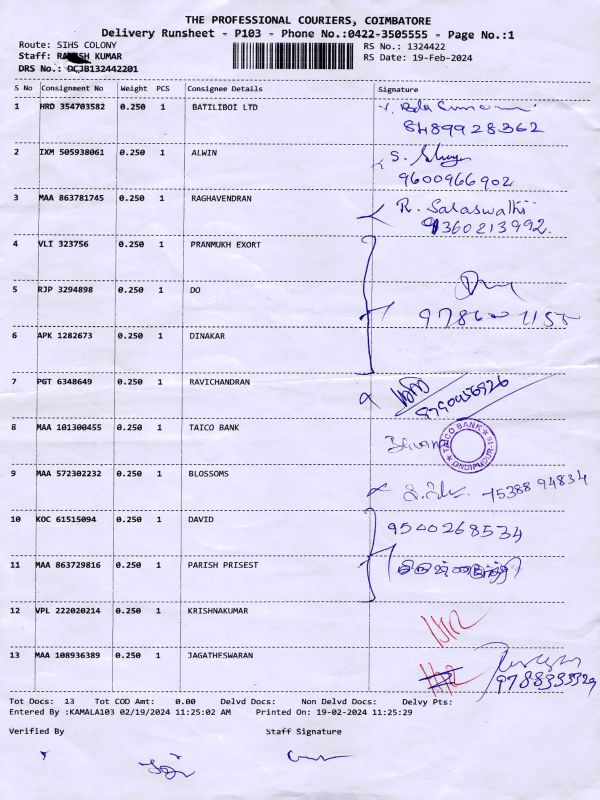 THE PROFESSIONAL COURIERS, COIMBATORE
Delivery Runsheet - P103 - Phone No.:0422-3505555 - Page No.:1
Route: SIHS COLONY
RS No.: 1324422
Staff: KUMAR
RS Date: 19-Feb-2024
DRS No.: DCJB132442201
S No Consignment No Weight PCS Consignee Details Signature
1 HRD 354703582 0.250 1 BATILIBOI LTD
8489928362
2 IXM 505938061 0.250 1 ALWIN S.
9600966902
3 MAA 863781745 0.250 1 RAGHAVENDRAN R. Saraswathi
9360213992.
4 VLI 323756 0.250 1 PRANMUKH EXORT
5 RJP 3294898 0.250 1 DO
6 APK 1282673 0.250 1 DINAKAR
7 PGT 6348649 0.250 1 RAVICHANDRAN
8 MAA 101300455 0.250 1 TAICO BANK TAICO BANK
9 MAA 572302232 0.250 1 BLOSSOMS 75388 94834
10 KOC 61515094 0.250 1 DAVID 9500268534
11 MAA 863729816 0.250 1 PARISH PRISEST
12 VPL 222020214 0.250 1 KRISHNAKUMAR
13 MAA 108936389 0.250 1 JAGATHESWARAN
Tot Docs: 13 Tot COD Amt: 0.00 Delvd Docs: Non Delvd Docs: Delvy Pts:
Entered By :KAMALA103 02/19/2024 11:25:02 AM Printed On: 19-02-2024 11:25:29
Verified By Staff Signature